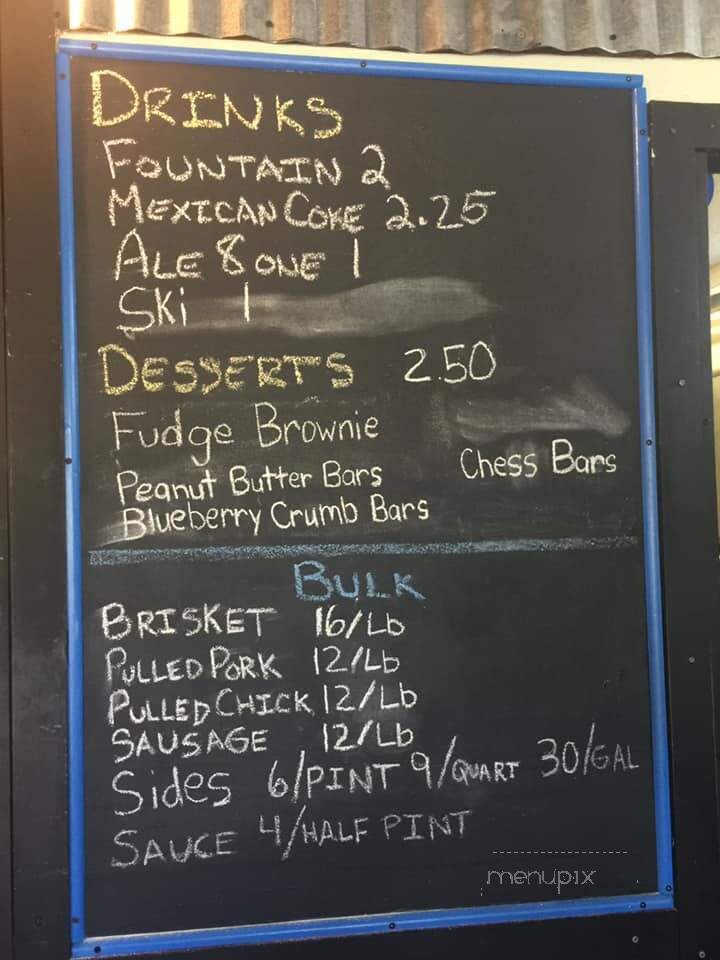 DRINKS
FOUNTAIN 2
MEXICAN COKE 2.25
ALE 8 ONE 1
Ski 1
DESSERTS 2.50
Fudge Brownie
Chess Bars
Peanut Butter Bars
Blueberry Crumb Bars
BULK
BRISKET 16/Lb
PULLED PORK 12/Lb
PULLED CHICK 12/Lb
SAUSAGE 12/Lb
Sides 6/PINT 9/QUART 30/GAL
SAUCE 4/HALF PINT
menupix